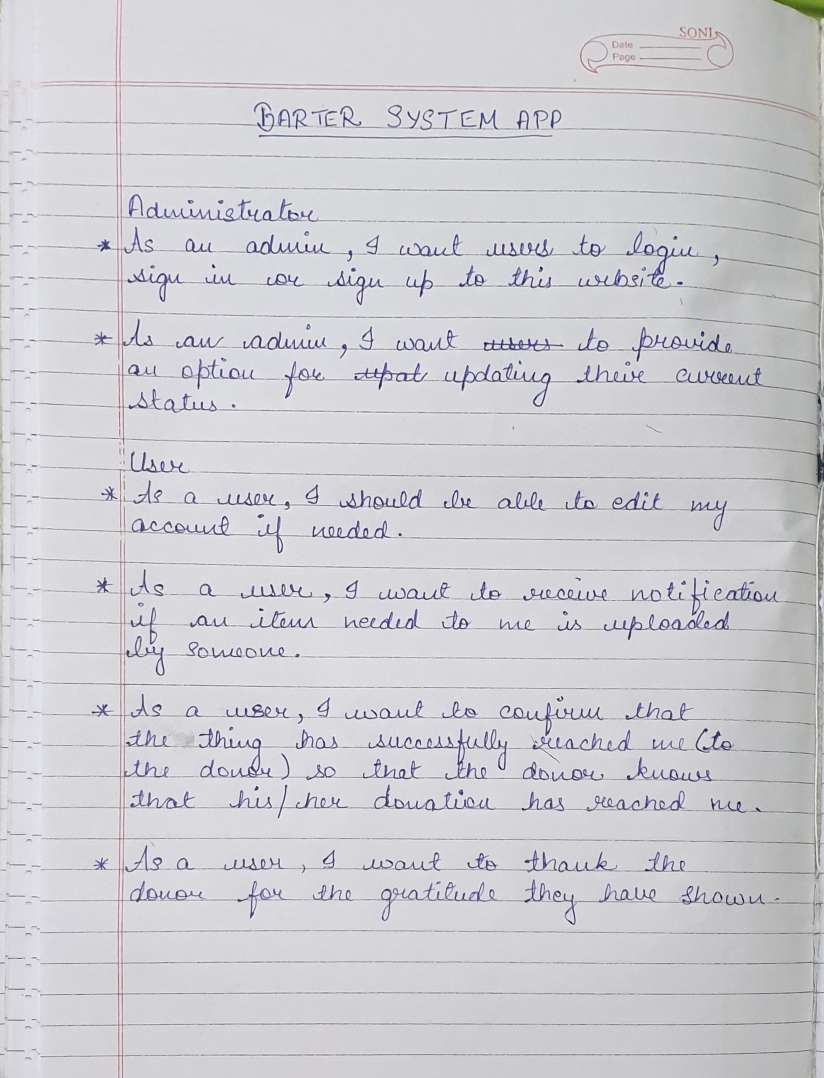 SONI
Date
Page
BARTER SYSTEM APP
Administrator
* As an admin, I want users to login,
sign in or sign up to this website.
* As an admin, I want users to provide
an option for upat updating their current
status.
User
* As a user, I should be able to edit my
account if needed.
* As a user, I want to receive notification
if an item needed to me is uploaded
by someone.
* As a user, I want to confirm that
the thing has successfully reached me (to
the donor) so that the donor knows
that his/her donation has reached me.
* As a user, I want to thank the
donor for the gratitude they have shown.